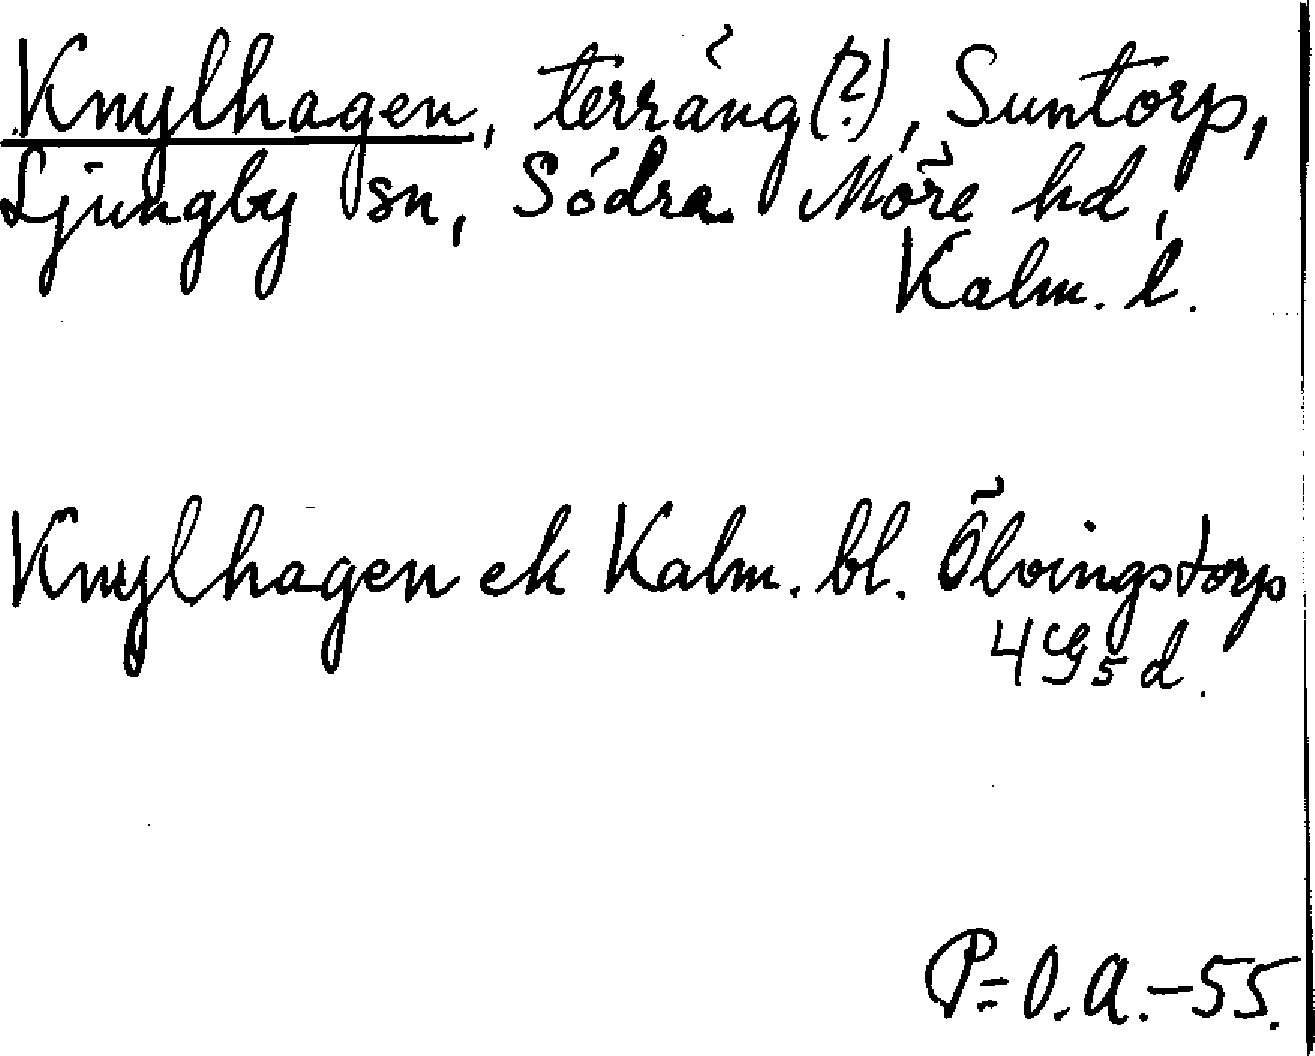 Knylhagen, terräng(?), Suntorp,
Ljungby sn, Södra Möre hd,
Kalm. l.
Knylhagen ek Kalm. bl. Ölvingstorp
4G5d.
P=O.A.-55.